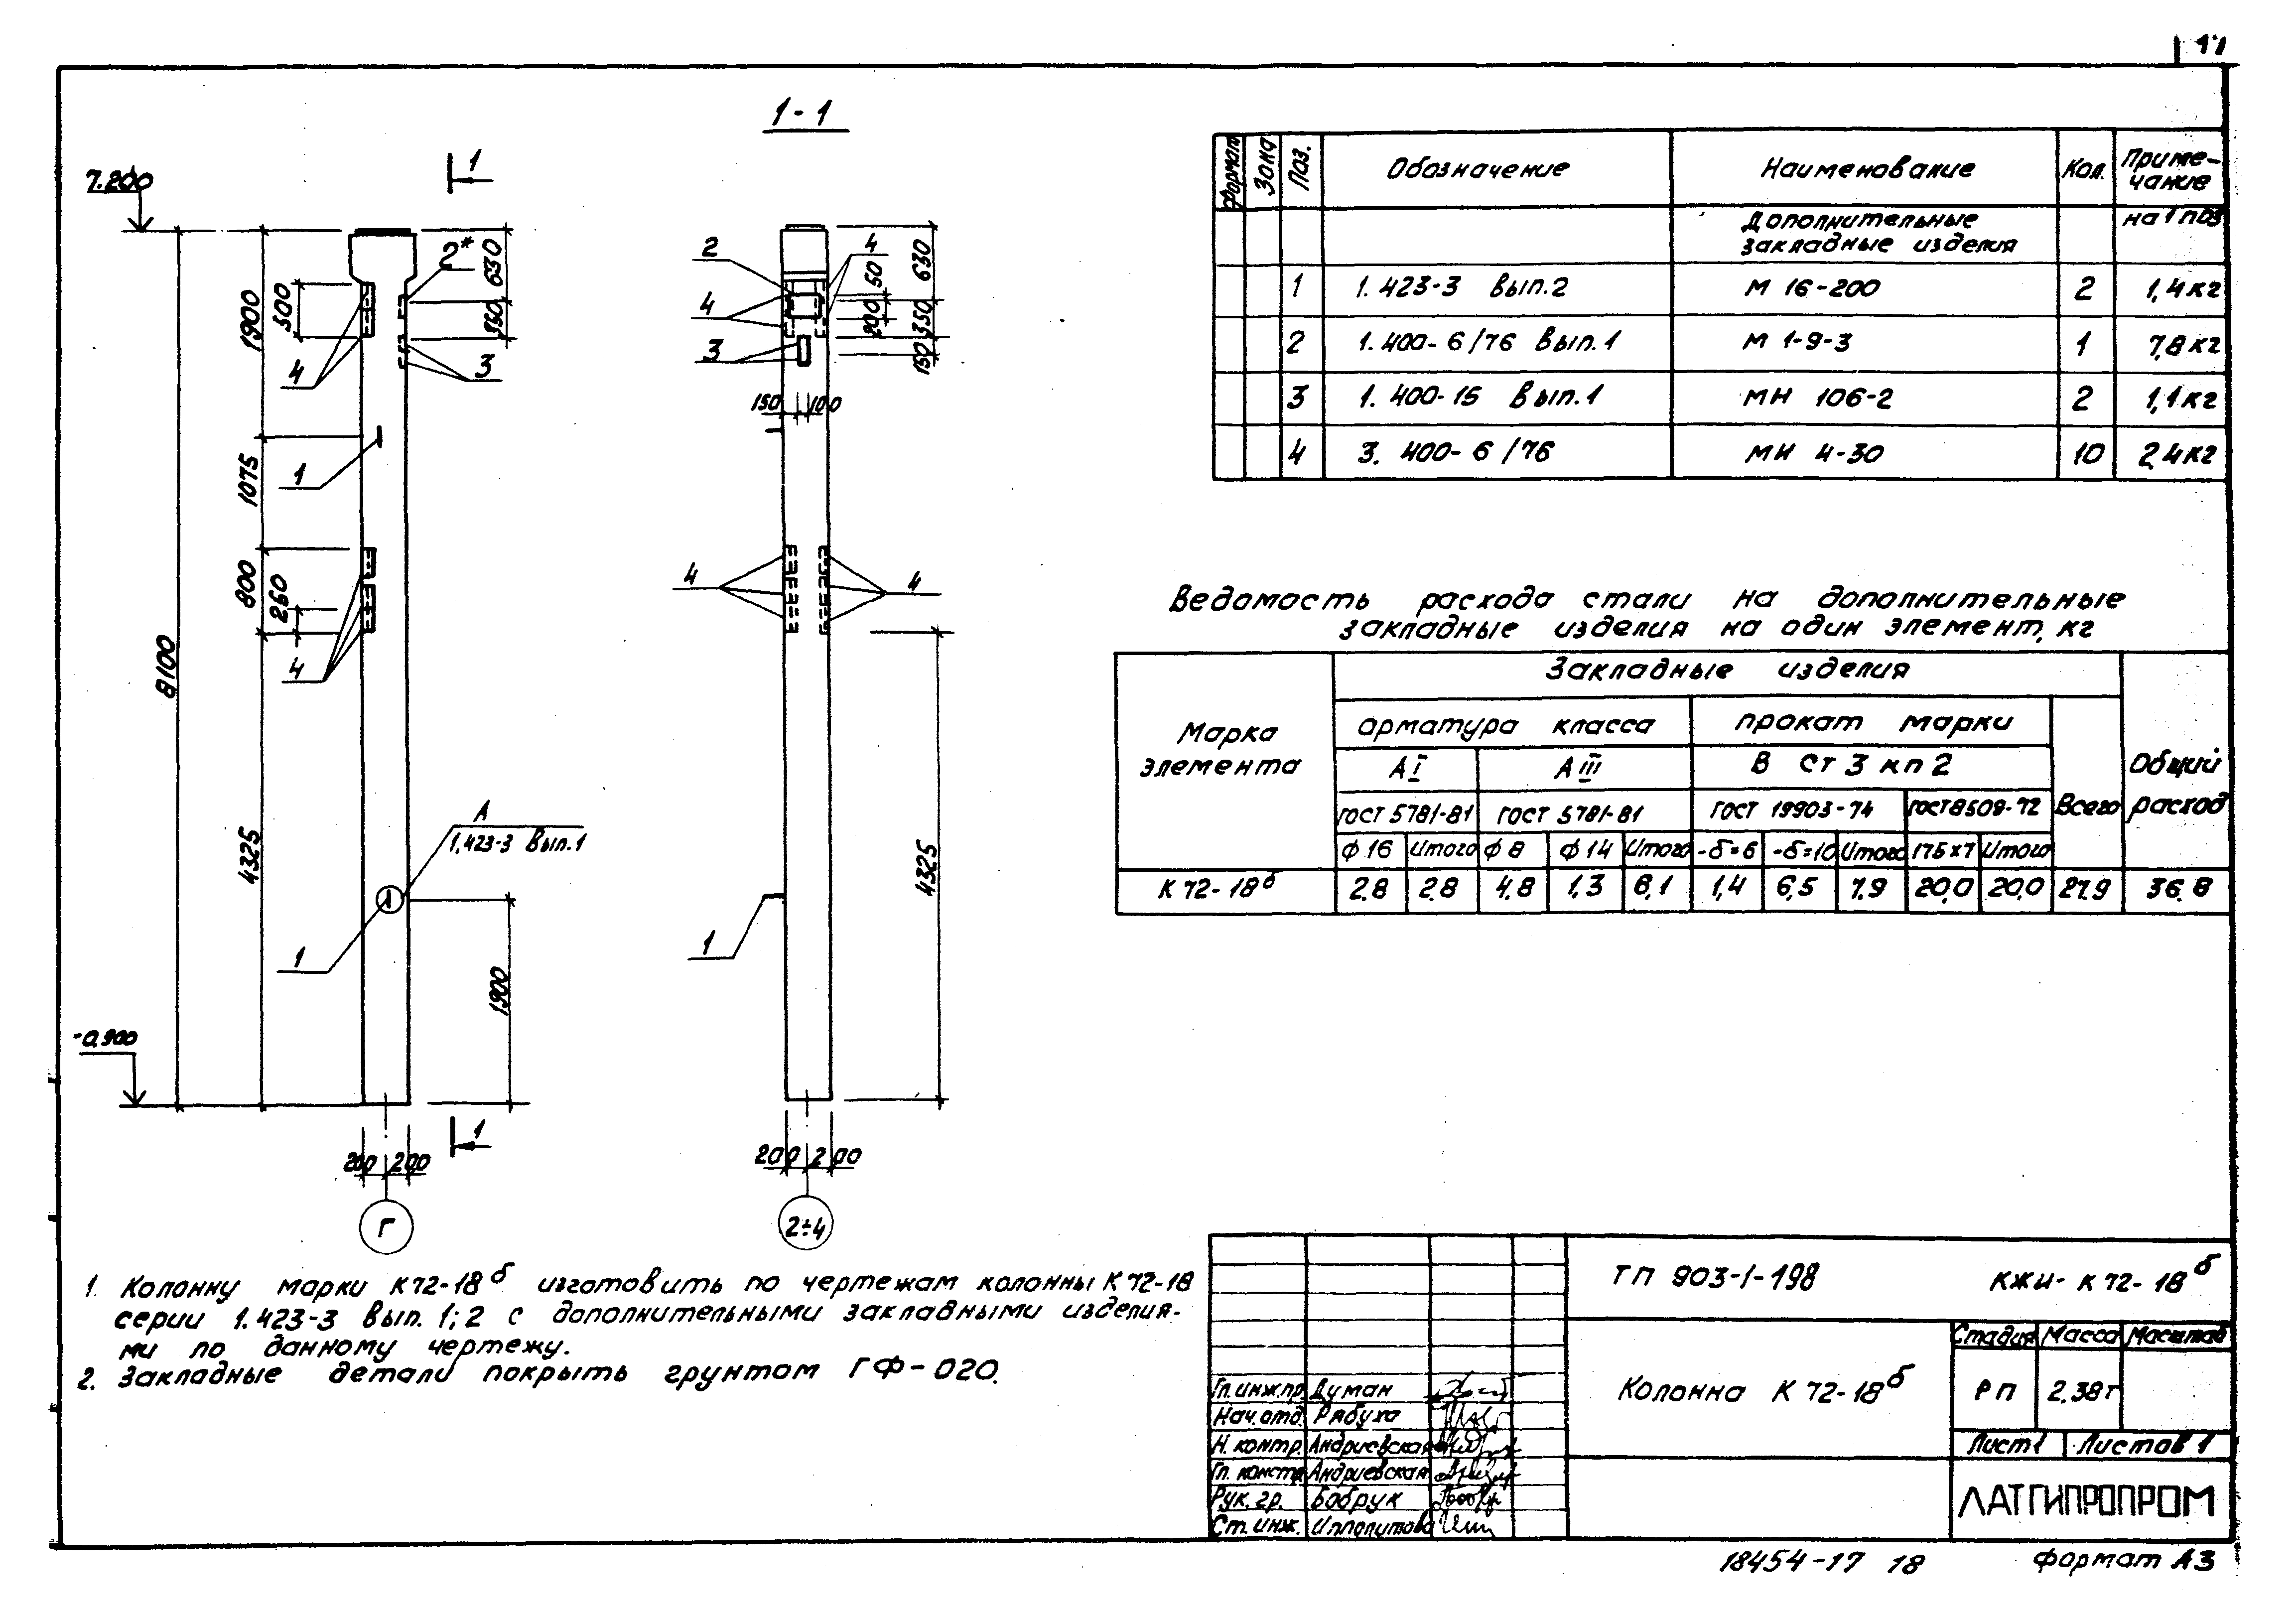 17
1-1
7.200
1
2*
630
350
1900
500
4
3
1
1075
800
260
4
8100
4325
А
1.423-3 Вып.1
1
1900
-0.900
1
200 200
Г
2
4
4
3
50
630
200
350
150
150 100
4
4
4325
1
200 200
2÷4
Формат Зона Поз. Обозначение Наименование Кол. Приме-
чание
Дополнительные на 1 поз
закладные изделия
1 1.423-3 Вып.2 М 16-200 2 1,4кг
2 1.400-6/76 Вып.1 М 1-9-3 1 7,8кг
3 1.400-15 Вып.1 МН 106-2 2 1,1кг
4 3.400-6/76 МН 4-30 10 2,4кг
Ведомость расхода стали на дополнительные
закладные изделия на один элемент, кг
Марка
элемента
Закладные изделия
арматура класса прокат марки
АI АIII В Ст 3 кп 2
ГОСТ 5781-81 ГОСТ 5781-81 ГОСТ 19903-74 ГОСТ 8509-72 Всего
Общий
расход
ф16 Итого ф8 ф14 Итого -δ=6 -δ=10 Итого 175х7 Итого
К 72-18б 2.8 2.8 4.8 1,3 6,1 1,4 6,5 7,9 20,0 20,0 27,9 36.8
1. Колонну марки К72-18б изготовить по чертежам колонны К72-18
серии 1.423-3 вып. 1; 2 с дополнительными закладными изделия-
ми по данному чертежу.
2. Закладные детали покрыть грунтом ГФ-020.
ТП 903-1-198 КЖИ- К 72-18б
Колонна К 72-18б
Стадия Масса Масштаб
РП 2.38т
Лист 1 Листов 1
Гл.инж.пр. Думан
Нач.отд. Рябуха
Н. контр. Андриевская
Гл. констр Андриевская
Рук. гр. Бобрук
Ст. инж. Ипполитова
ЛАТГИПРОПРОМ
18454-17 18 Формат А3